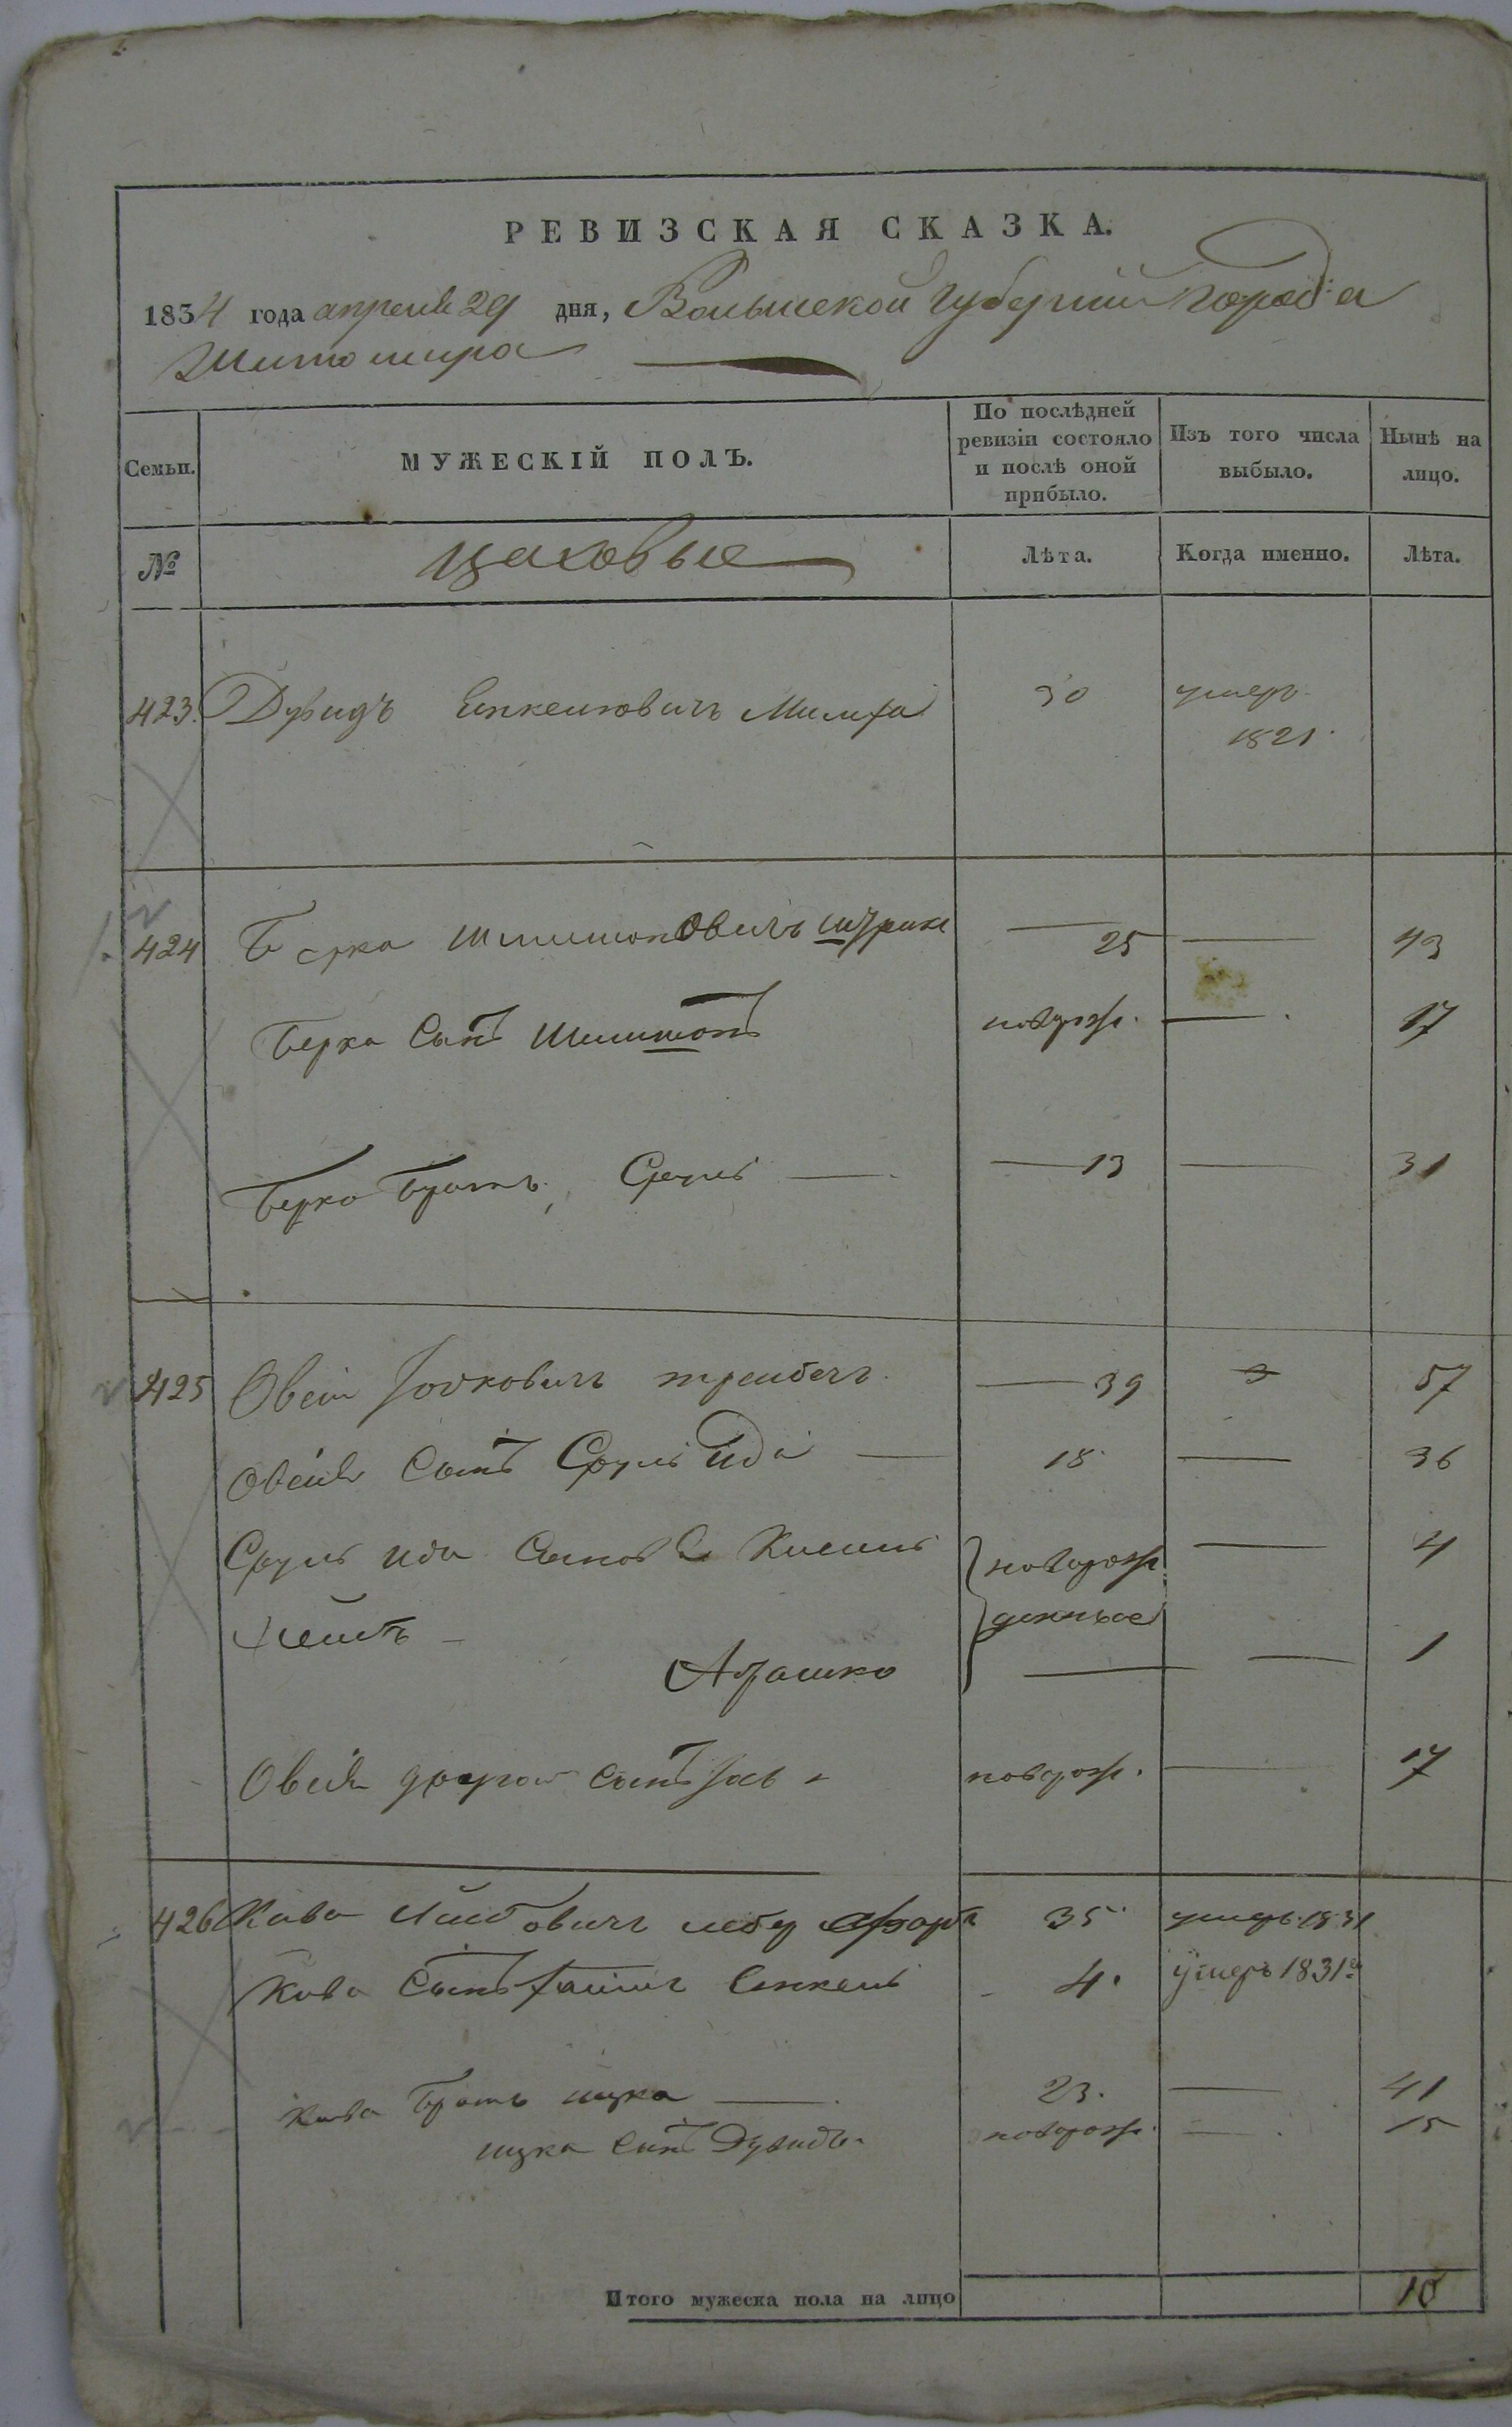 РЕВИЗСКАЯ СКАЗКА.
1834 года апреля 29 дня, Волынской губернии города
Житомира
Семьи. МУЖЕСКІЙ ПОЛЪ. По послѣдней ревизіи состояло и послѣ оной прибыло. Изъ того числа выбыло. Нынѣ на лицо.
№ цеховые Лѣта. Когда именно. Лѣта.
423. Дувидъ 30 умеръ
1821.
424 Берка Шлимоновичъ 25 — 43
Берка Сынъ Шлимонъ новорож. — 17
Берка Братъ Сруль — 13 — 31
425 Овсій Іосковичъ — 39 57
Овсія Сынъ Сруль Юда — 18 — 36
Сруль Юда Сыновья новорож — 4
денные
Абрашко — — 1
Овсія другой сынъ новорож. — 17
426 Кива 35 умеръ 1831
Кива Сынъ Хаимъ 4. умеръ 1831г
Кива Братъ ицка — 23. — 41
ицка Сынъ Дувидъ новорож. — 15
Итого мужеска пола на лицо 10